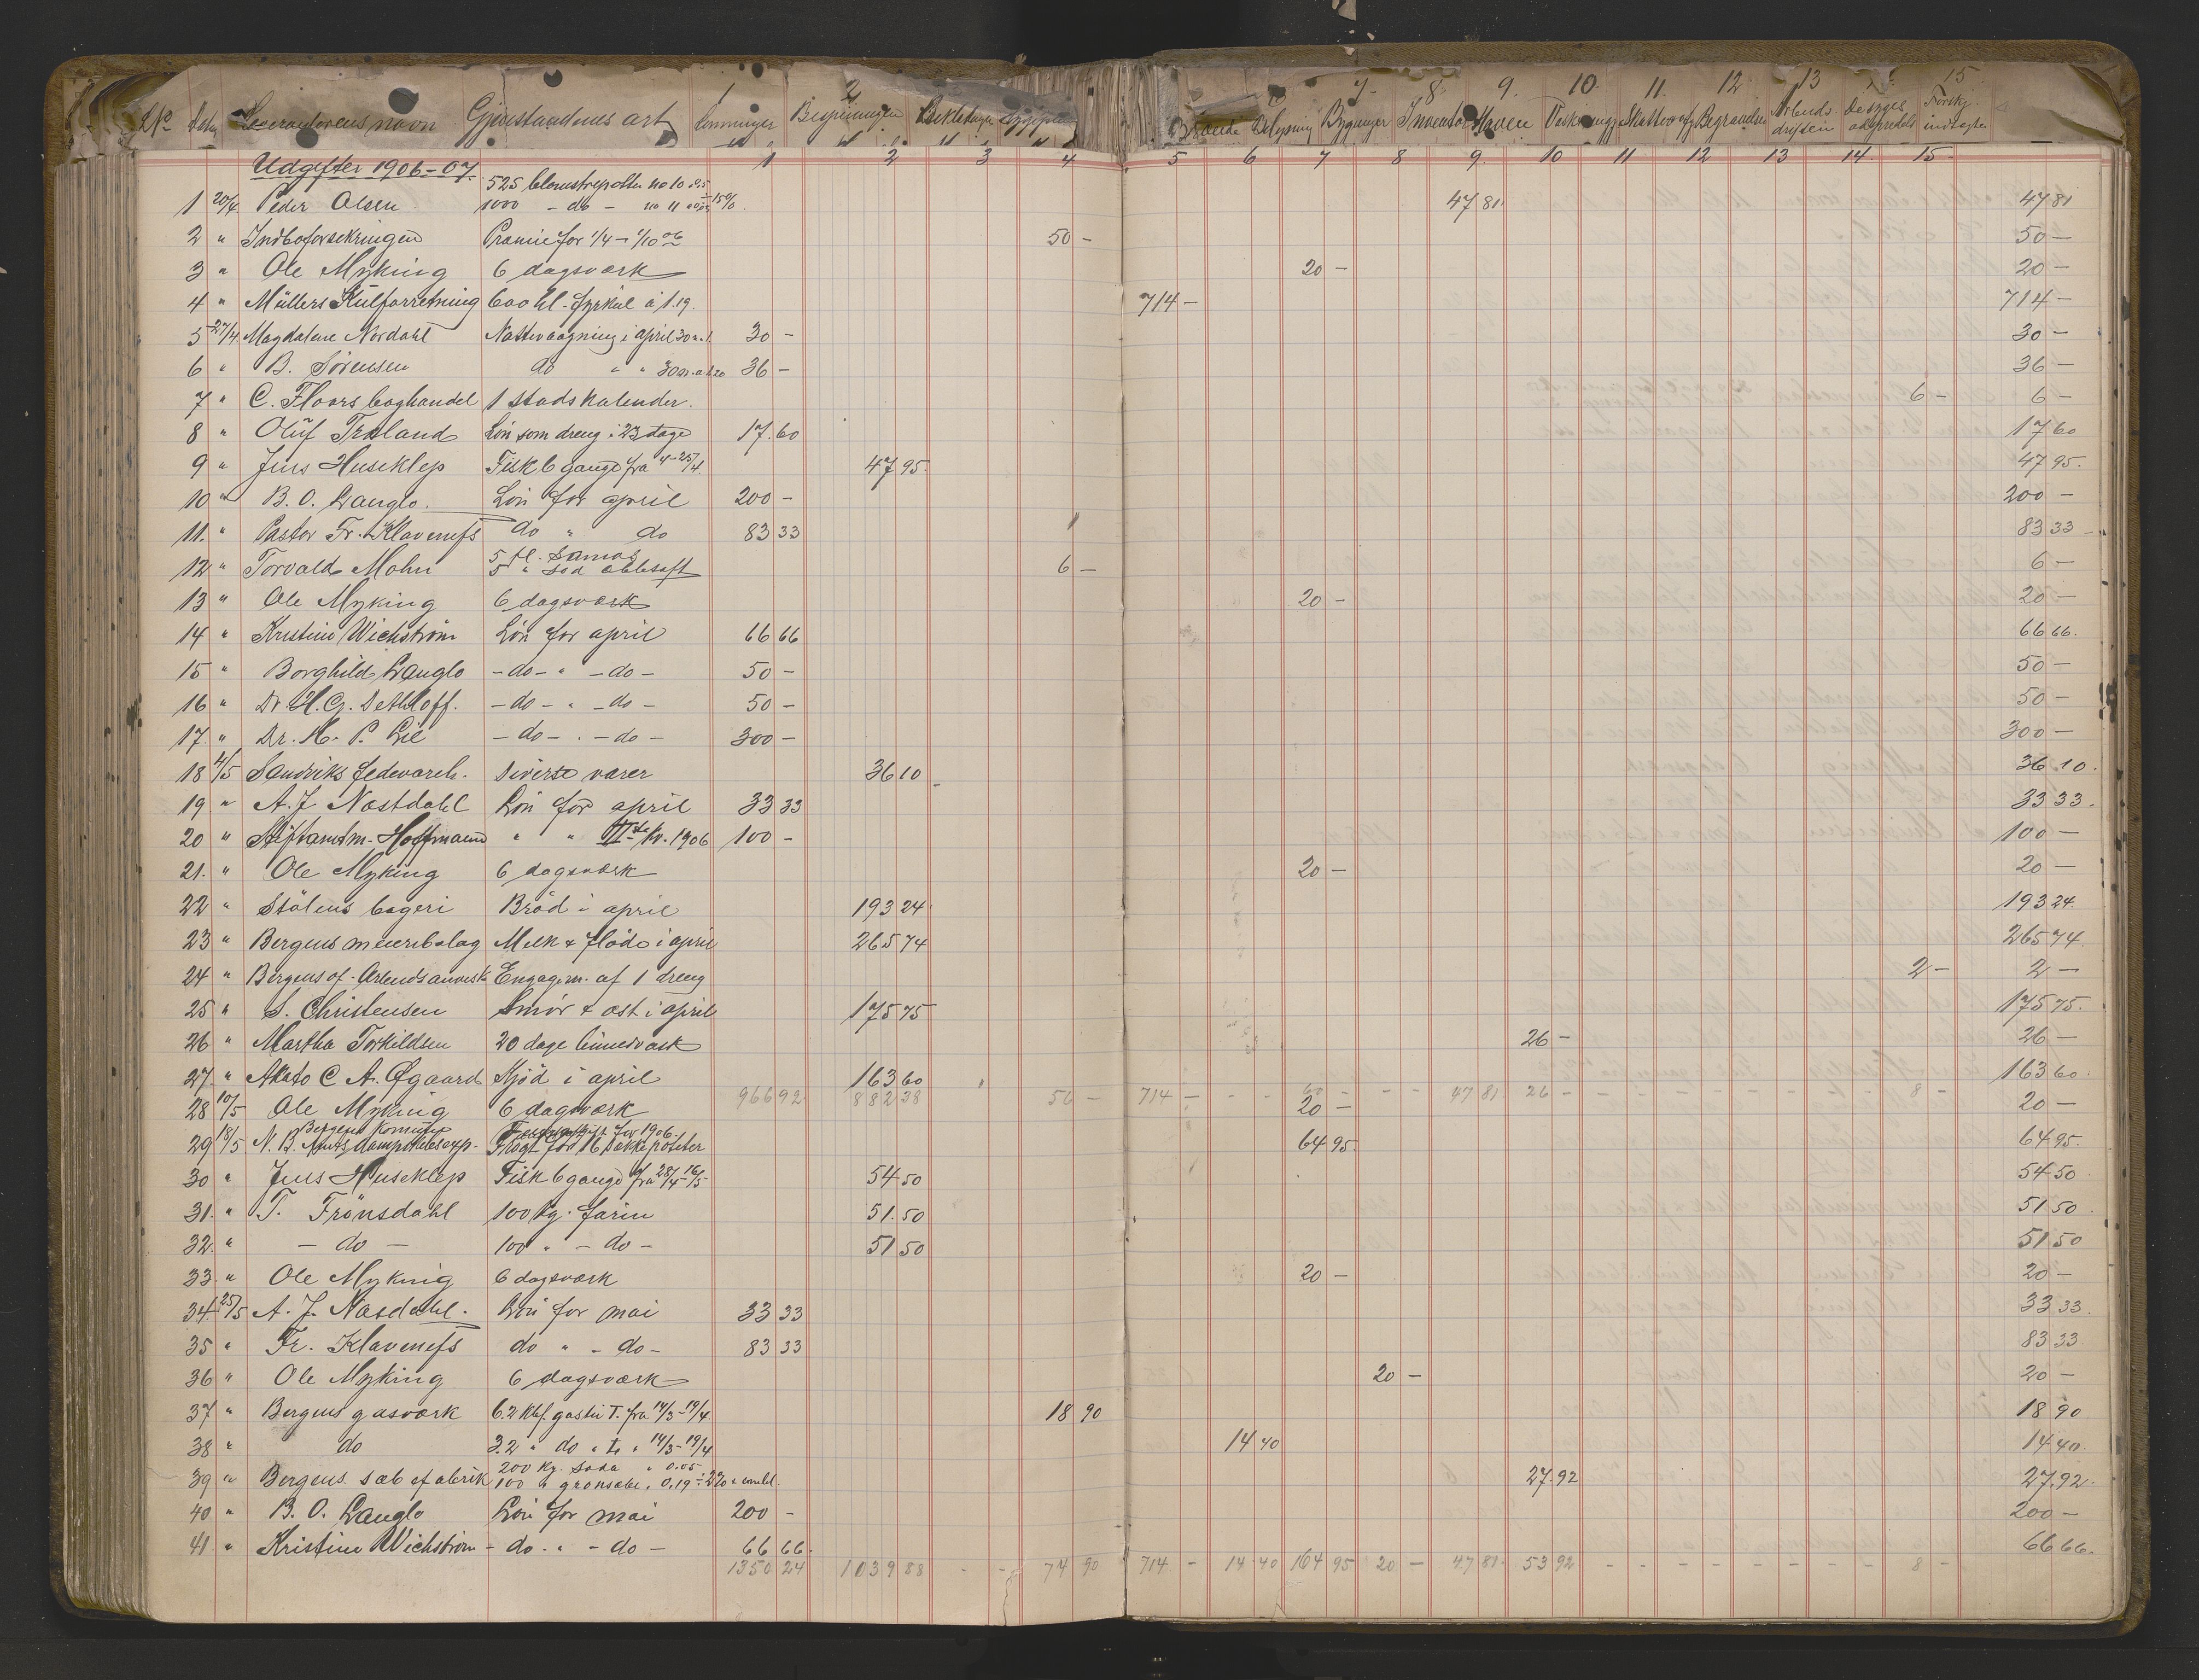 1 2 7. 8. 9. 10. 11. 12 13 15
No Leverandørens navn Gjenstandenes art Lønninger Bespisningen Beklædningen Sygeplei Brænde Belysning Bygninger Inventar Haven Vask Skatter Begravelser Arbeidsdriften indtægter
Udgifter 1906-07. 1 2 3 4 5 6 7 8 9. 10 11 12 13 14. 15
525 blomsterpotter no 10
1 20/4 Peder Olsen 1000 - do - no 11 15% 47 81 47 81
2 " Indboforsekringen Præmie for 1/4 - 1/10 06 50 - 50 -
3 " Ole Myking 6 dagsværk 20 - 20 -
4 " Müllers Kulforretning 600 hl. fyrkul à 1.19. 714 - 714 -
5 27/4 Magdalene Nordahl Nattevaagning i april 30 n. 30 - 30 -
6 " B. Sørensen do " " 30 n. a 1.20 36 - 36 -
7 " C. Floors boghandel 1 stadskalender. 6 - 6 -
8 " Oluf Træland Løn som dreng i 23 dage 17.60 17 60
9 " Jens Huseklep Fisk 6 gange fra 4-25/4 47 95. 47 95.
10 " B. O. Langlo. Løn for april 200 - 200 -
11. " Pastor Fr. Klaveness do " do 83 33 83 33
12 " Torvald Mohn 5 fl. Samos
5 " sød æblesaft 6 - 6 -
13 " Ole Myking 6 dagsværk 20 - 20 -
14 " Kristine Wichstrøm Løn for april 66 66 66 66.
15 " Borghild Langlo - do - " - do - 50 - 50 -
16 " Dr. H. G. Dethloff. - do - " - do - 50 - 50 -
17. " Dr. H. P. Lie - do - . - do - 300 - 300 -
18 4/5 Sandviks fedevareh. Diverse varer 36 10 36 10.
19 " A. J. Næstdahl Løn for april 33 33 33 33.
20 " Stiftamtm. Hoffmann " " Kv. 1906 100 - 100 -
21. " Ole Myking 6 dagsværk 20 - 20 -
22 " Stølens bageri Brød i april 193 24 193 24.
23 " Bergens meieribolag Melk & fløde i april 265 74 265 74
24 " Bergens of. Arbeidsanvisk Engagem. af 1 dreng 2 - 2 -
25 " S. Christensen Smør & ost i april 175 75 175 75.
26 " Martha Torkildsen 20 dage linnedvask 26 - 26 -
27. " C. A. Øgaard Kjød i april 163 60 163 60.
966 92 882 38 56 - 714 - - - 60 - - - 47 81 26 - - - - - - - - - 8 -
28 10/5 Ole Myking 6 dagsværk 20 - 20 -
Bergens Kommune for 1906
29 18/5 N. B. Amts dampskibsexp. Fragt for 16 64 95. 64 95.
30 " Jens Huseklep Fisk 6 gange fra 28/4-16/5 54 50 54 50
31. " T. Frønsdahl 100 kg. farin 51.50 51 50.
32. " - do - 100 " - do - 51 50 51 50
33 " Ole Myking 6 dagsværk 20 - 20 -
34 25/5 A. J. Næsdahl. Løn for mai 33 33 33 33.
35 " Fr. Klaveness do " - do - 83 33 83 33
36 " Ole Myking 6 dagsværk 20 - 20 -
37 " Bergens gasværk 6.2 kbf. gas til T. fra 14/3-19/4 18 90 18 90
38 " do 3.2 " do " t. " 14/3-19/4 14 40 14 40.
200 kg. soda " 0.05
39 " Bergens sæbefabrik 100 " grønsæbe " 0,19 27.92 27.92.
40 " B. O. Langlo Løn for mai 200 - 200 -
41 " Kristine Wichstrøm - do - " - do - 66 66. 66 66.
1350 24 1039 88 - - 74 90 714 - 14 40 164 95 20 - 47 81. 53 92 - - - - - - - - 8 -